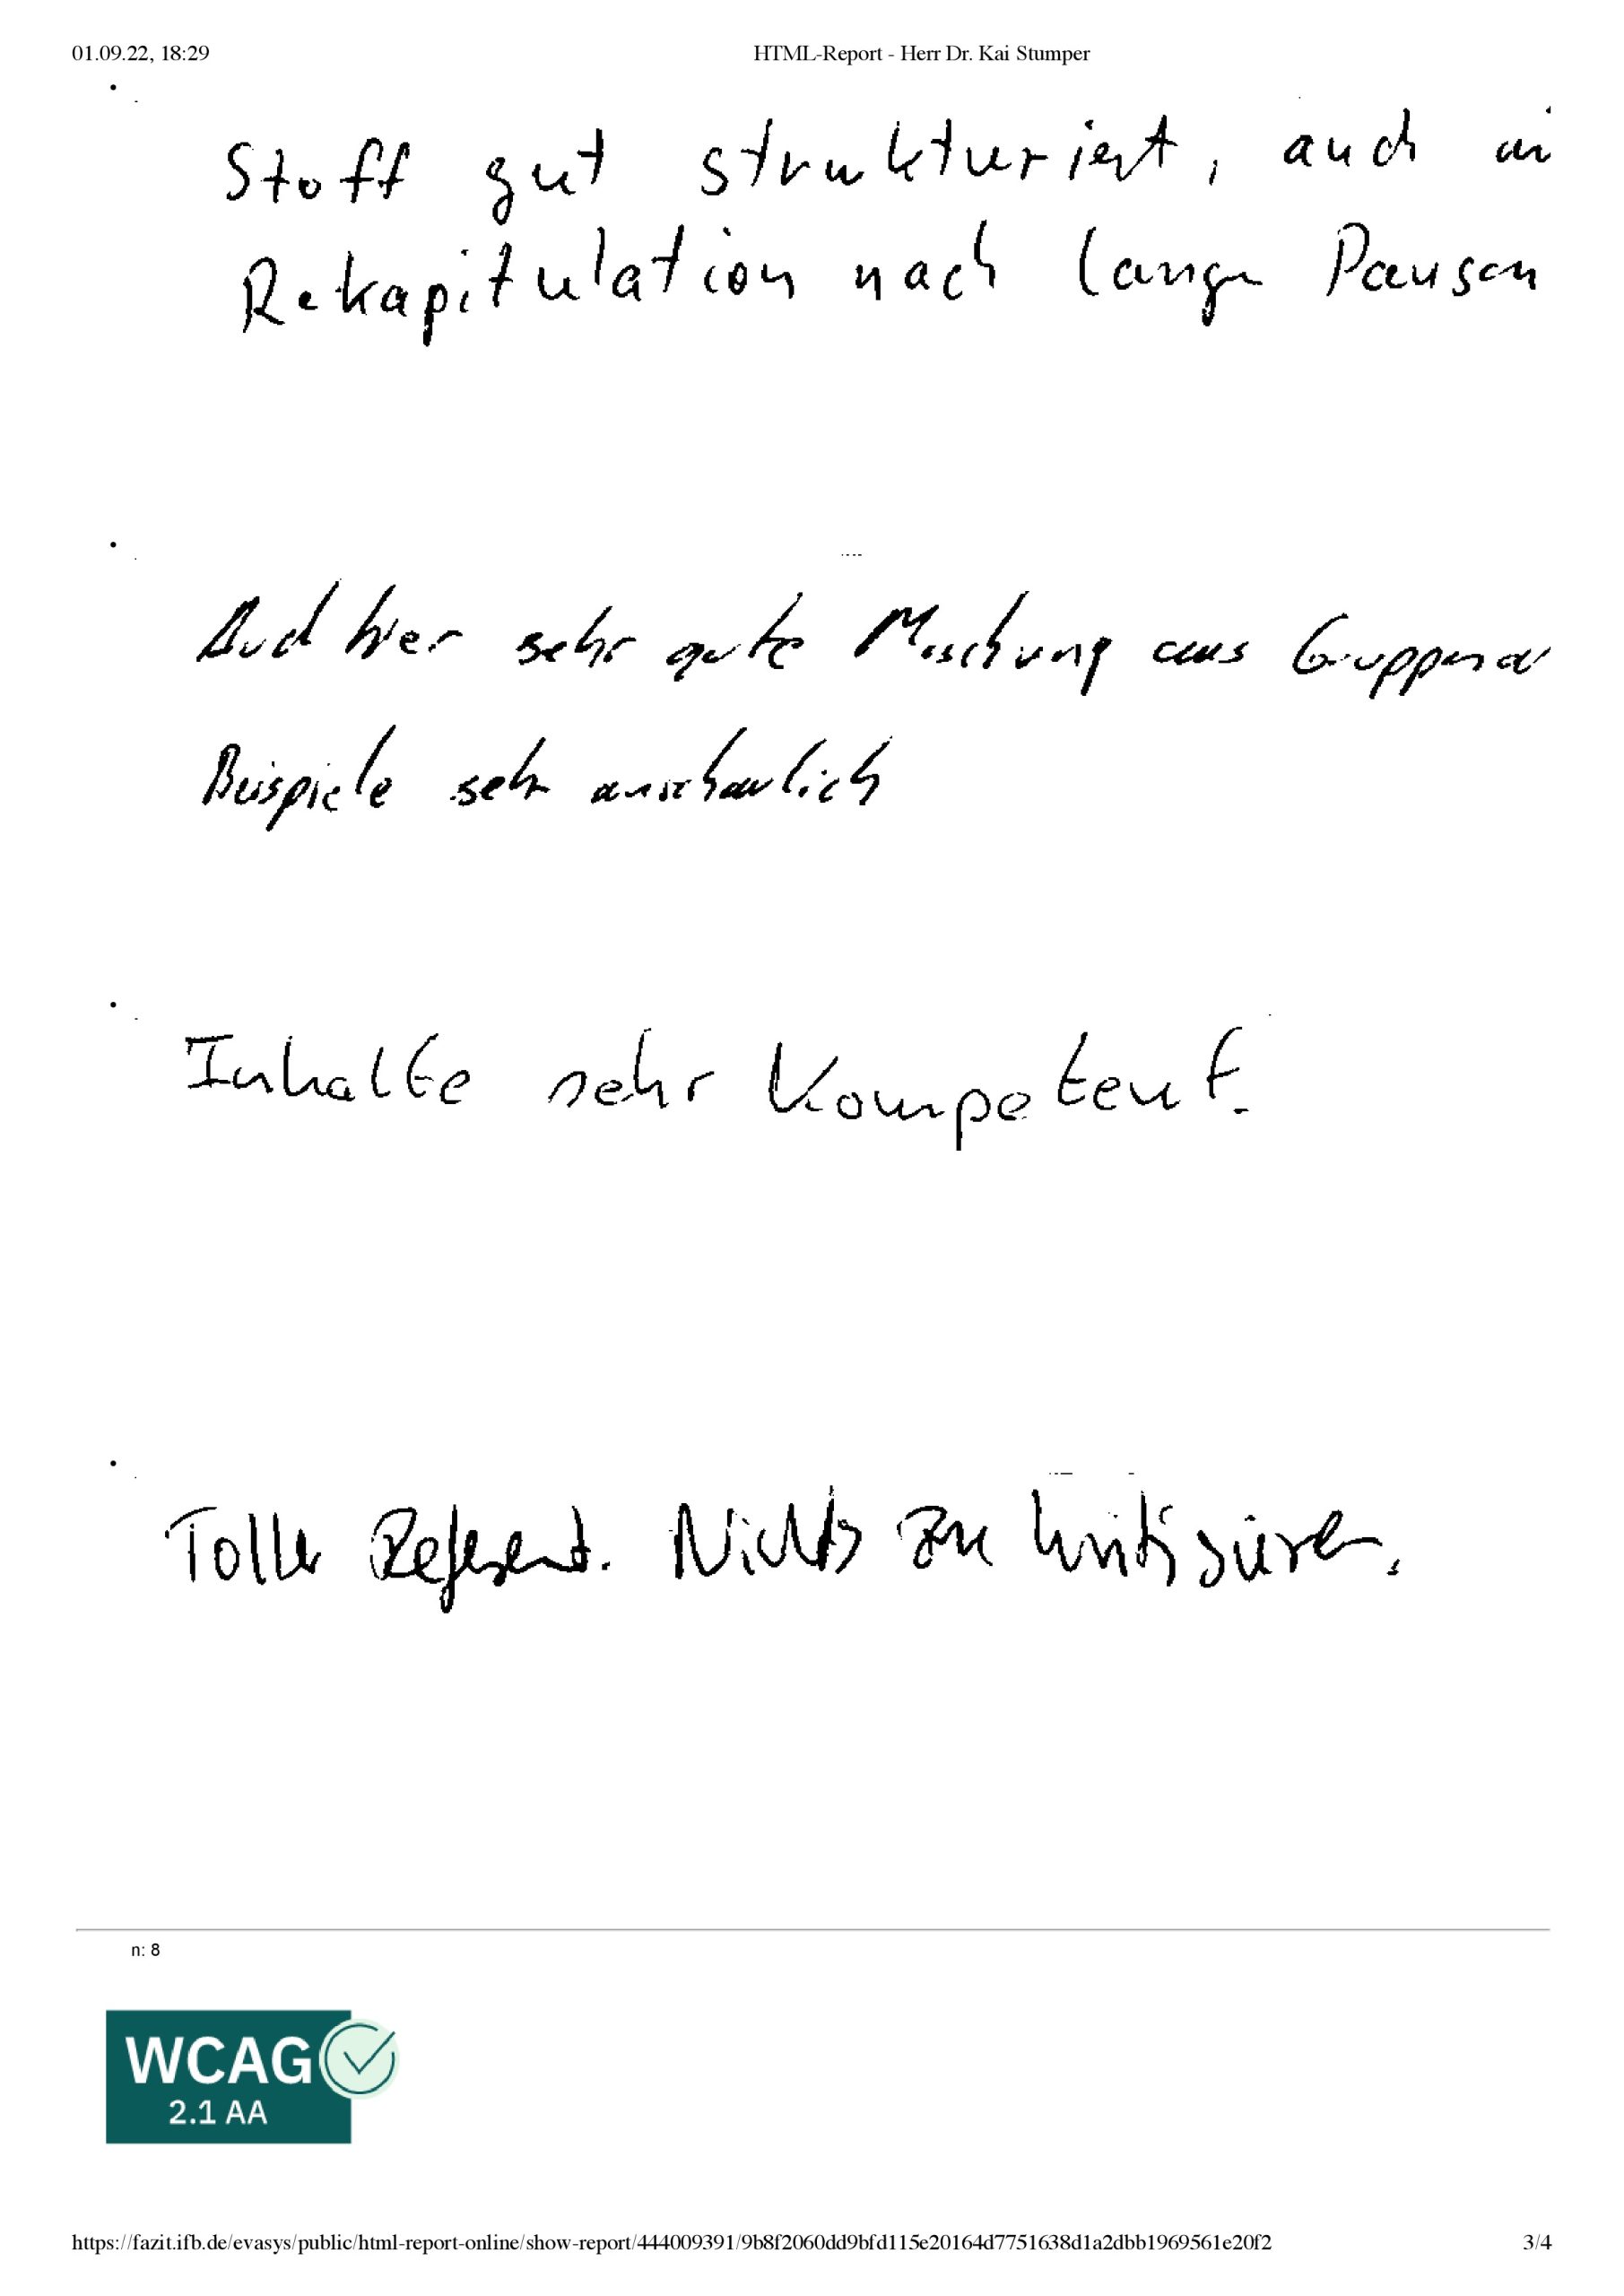 01.09.22, 18:29 HTML-Report - Herr Dr. Kai Stumper
Stoff gut strukturiert, auch in
Rekapitulation nach langen Pausen
Auch hier sehr gute Mischung aus
Beispiele sehr anschaulich
Inhalte sehr Kompetent.
Toller Referent. Nichts zu kritisieren.
n: 8
WCAG
2.1 AA
https://fazit.ifb.de/evasys/public/html-report-online/show-report/444009391/9b8f2060dd9bfd115e20164d7751638d1a2dbb1969561e20f2 3/4